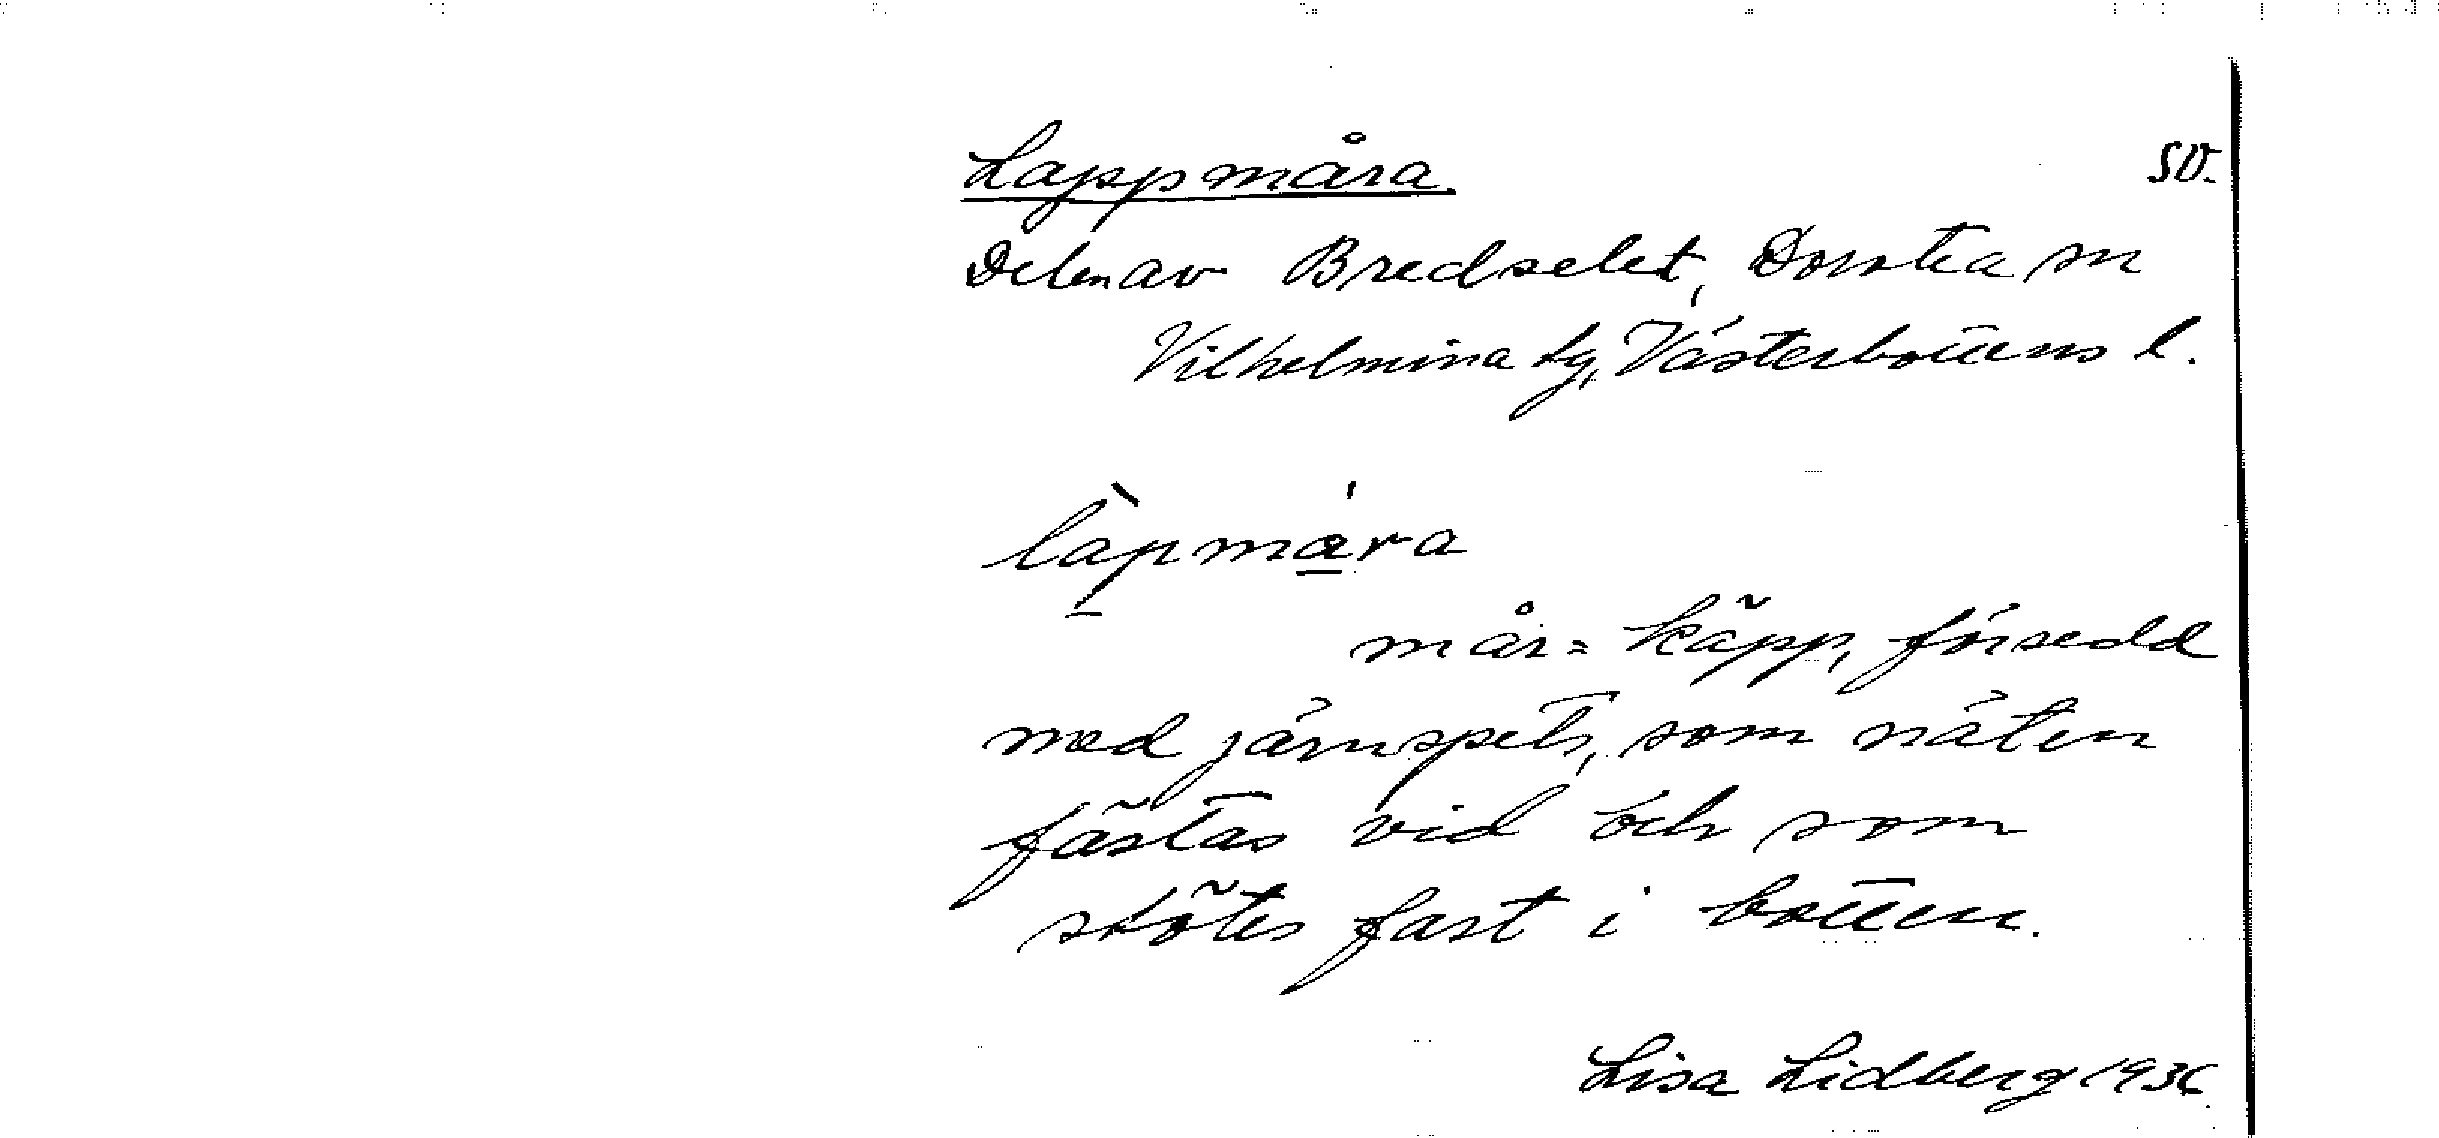 Lappmåra SV.
Del av Bredselet, Dorotea sn
Vilhelmina tg, Västerbottens l.
làpmára
mår = käpp, försedd
med järnspets, som näten
fästas vid och som
stötes fast i botten.
Lisa Lidberg 1936